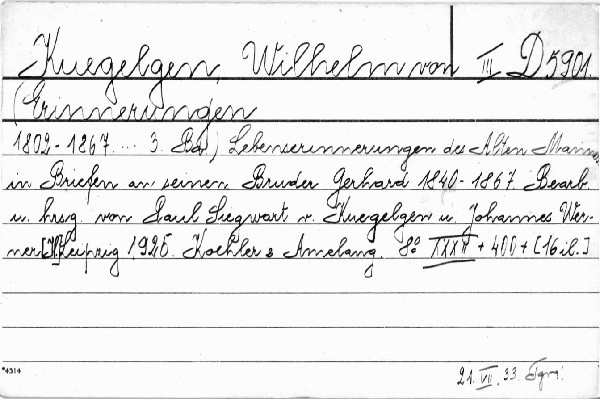 Kuegelgen, Wilhelm von III D 5901.
(Erinnerungen
1802-1867 ... 3. Bd.) Lebenserinnerungen des Alten Mannes
in Briefen an seinen Bruder Gerhard 1840-1867. Bearb.
u. hrsg. von Paul Siegwart v. Kuegelgen u. Johannes Wer-
ner Leipzig 1925. Koehler & Amelang. 8° XXXII + 400 + [16 il.]
*4314
21. VII. 33.